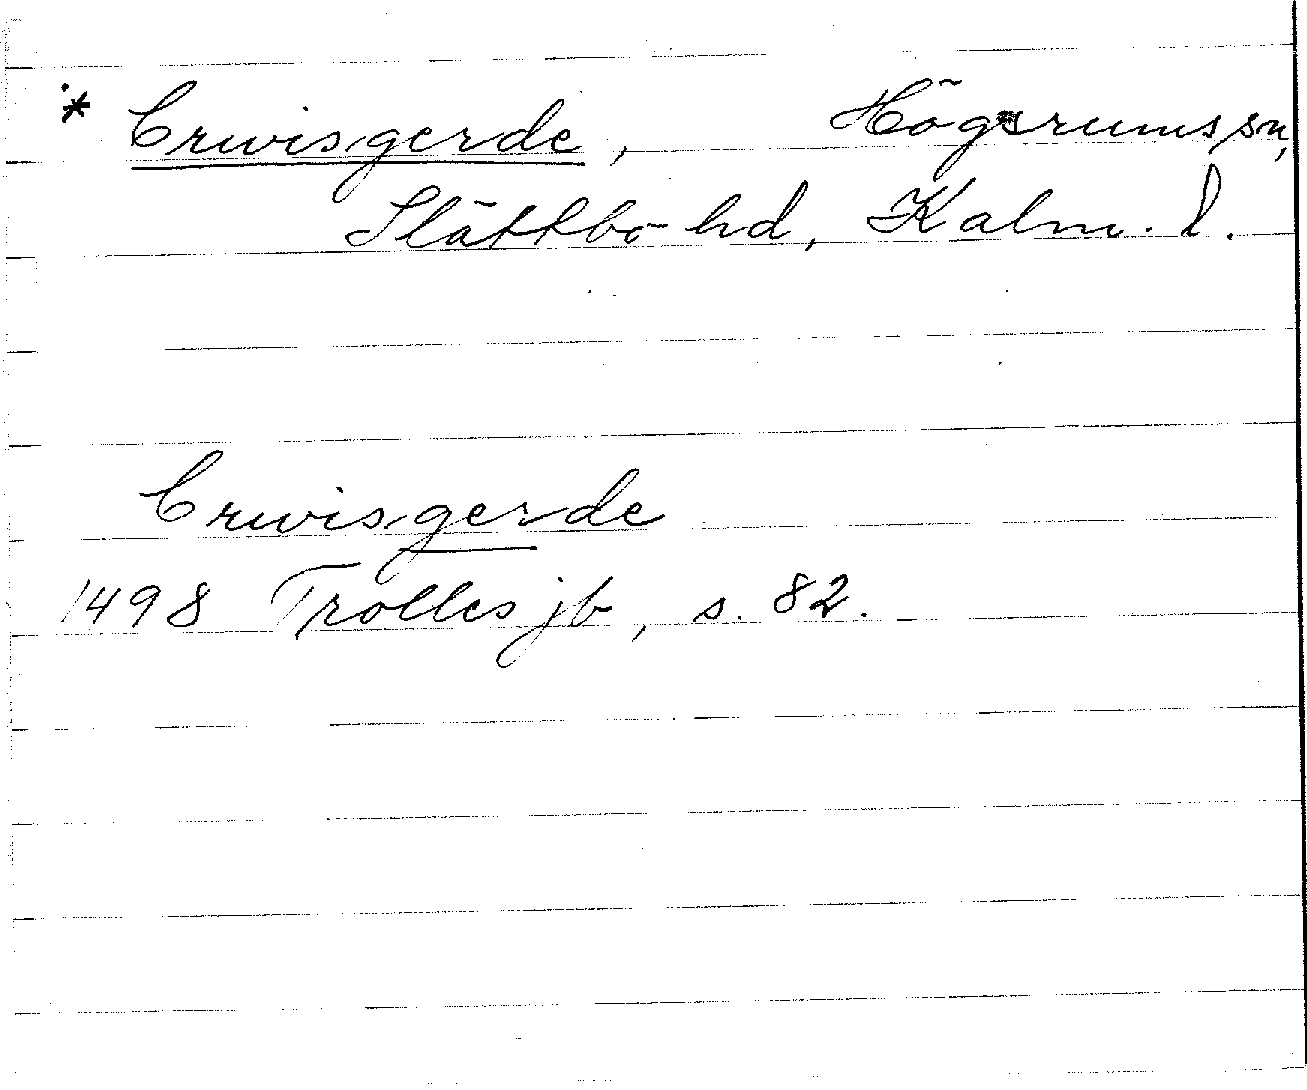 * Crwisgerde, Högsrums sn,
Slättbo hd, Kalm. l.
Crwisgerde
1498 Trolles jb, s. 82.